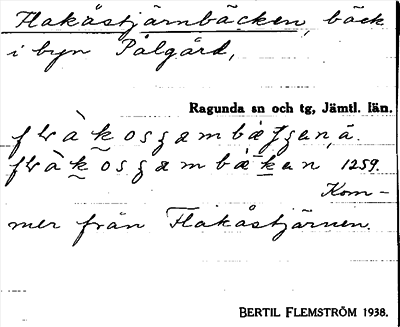 Flakåstjärnbäcken, bäck
i byn Pålgård,
Ragunda sn och tg, Jämtl. län.
1259.
Kom-
mer från Flakåstjärnen.
BERTIL FLEMSTRÖM 1938.